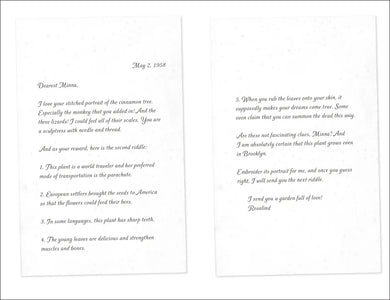 May 2, 1958
Dearest Minna,
I love your stitched portrait of the cinnamon tree.
Especially the monkey that you added in! And the
three lizards! I could feel all of their scales. You are
a sculptress with needle and thread.
And as your reward, here is the second riddle:
1. This plant is a world traveler and her preferred
mode of transportation is the parachute.
2. European settlers brought the seeds to America
so that the flowers could feed their bees.
3. In some languages, this plant has sharp teeth.
4. The young leaves are delicious and strengthen
muscles and bones.
5. When you rub the leaves onto your skin, it
supposedly makes your dreams come true. Some
even claim that you can summon the dead this way.
Are these not fascinating clues, Minna? And
I am absolutely certain that this plant grows even
in Brooklyn.
Embroider its portrait for me, and once you guess
right, I will send you the next riddle.
I send you a garden full of love!
Rosalind